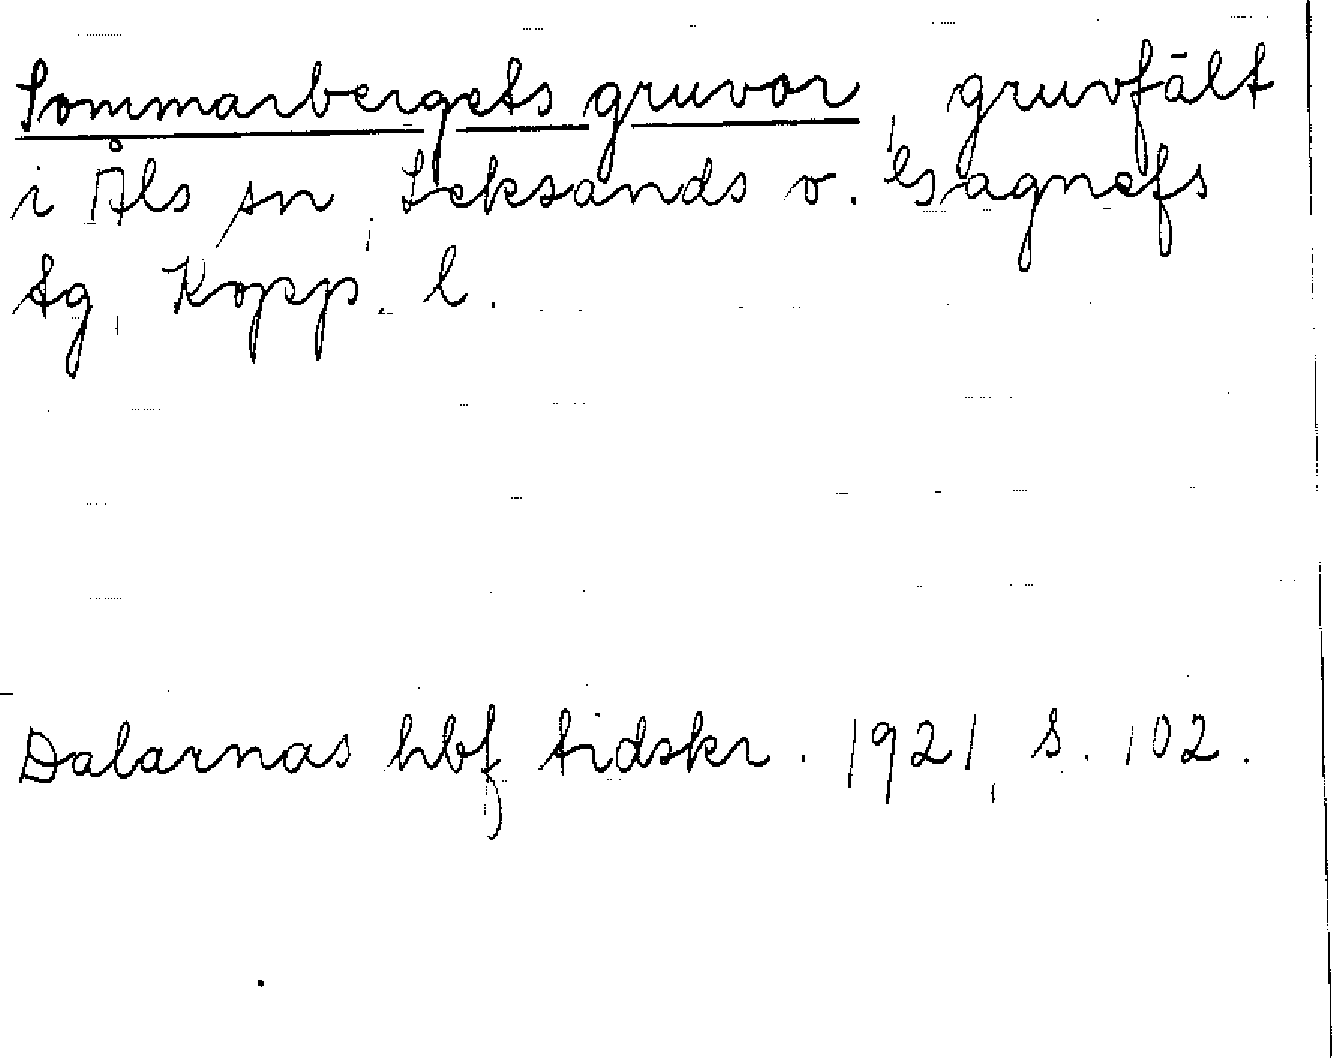 Sommarbergets gruvor, gruvfält
i Åls sn, Leksands o. Gagnefs
tg, Kopp. l.
Dalarnas hbf, tidskr. 1921, s. 102.